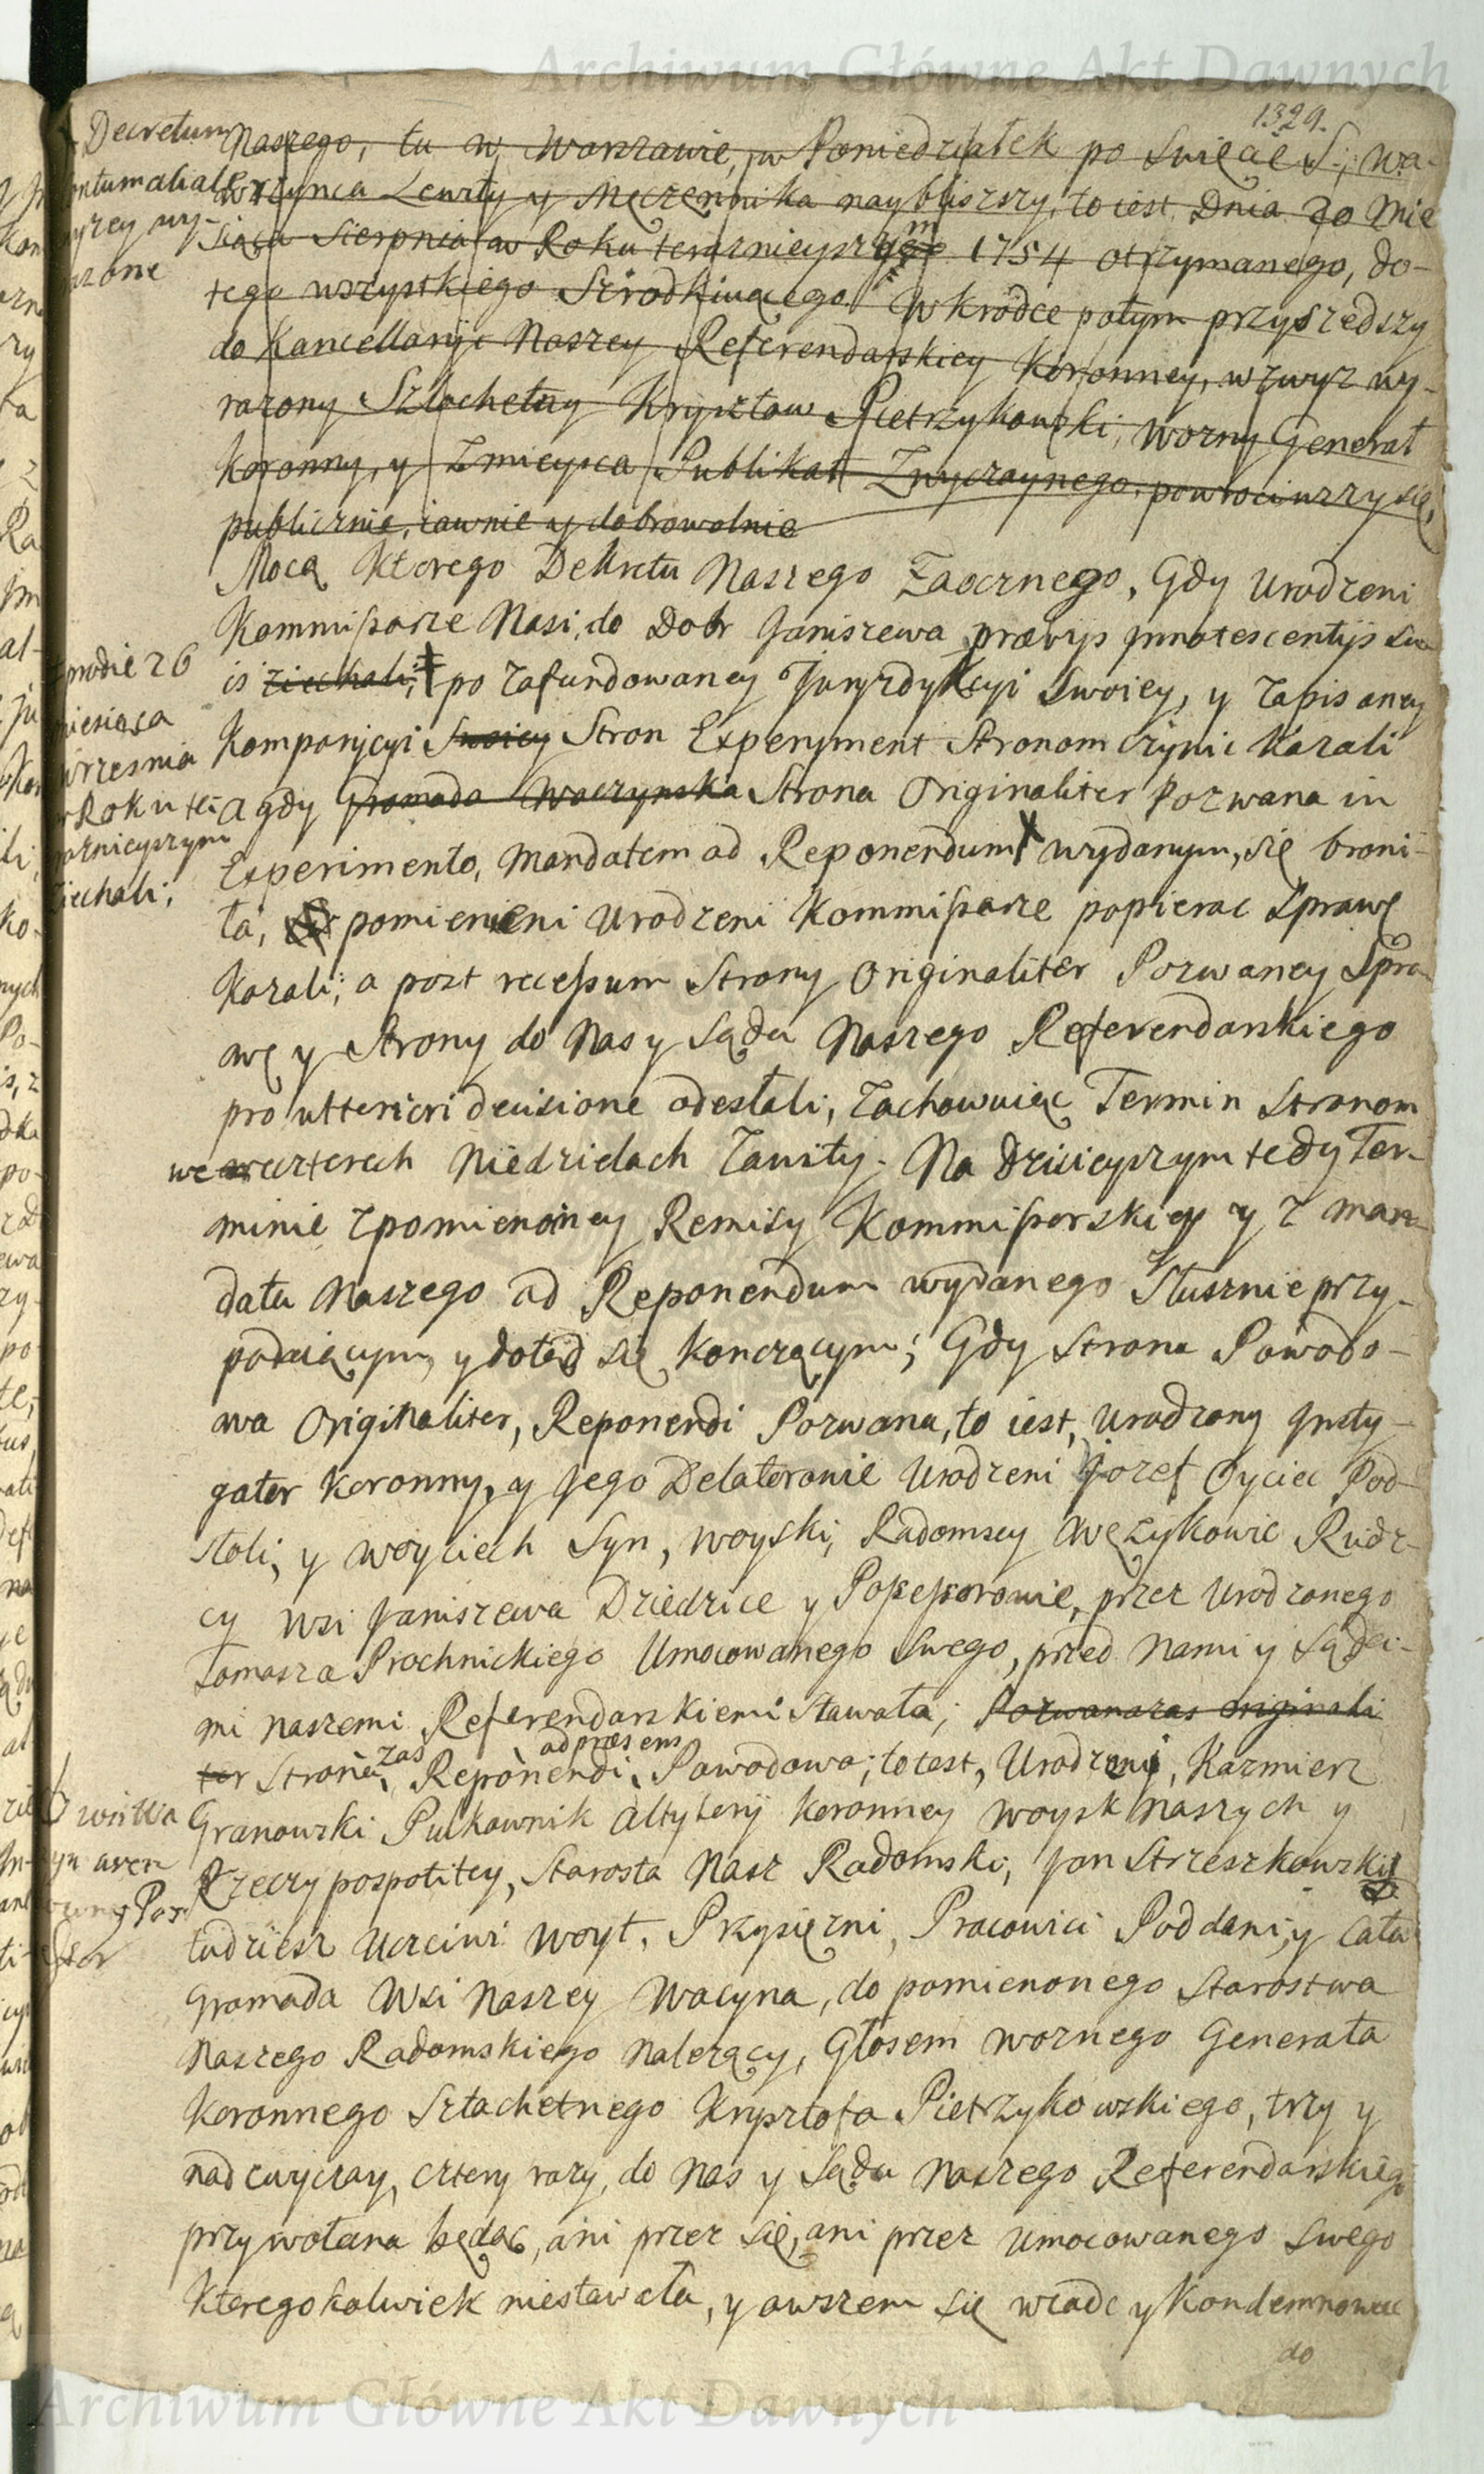 Archiwum Główne Akt Dawnych
1329.
Decretum
Contumaciale
wyzey wy-
razone
Naszego, tu w Warszawie, w Poniedziałek po Swięcie S: Wa-
wrzynca Lewity y Męczennika naybliszszy, to iest Dnia Mie
siąca Sierpnia w Roku teraznieyszym 1754 otrzymanego, do
tego wszystkiego Szrodkuiącego. Wkrodce potym przyszedszy
do Kancellaryi Naszey Referendarskiey Koronney, wzwyz wy-
razony Szlachetny Krysztow Pietrzykowski, Wozny Generał
Koronny, y Zmieysca Publikat Zwyczaynego, powrociwszy się,
publicznie, iawnie y dobrowolnie
Mocą Ktorego Dekretu Naszego Zaocznego, Gdy Urodzeni
Kommissarze Nasi, do Dobr Janiszewa prævijs Jnnotescentijs su
is ziechali, po zafundowaney Juryzdykcyi Swoiey, y zapisaney
dnia 26
miesiąca
wrzesnia
w Roku te
raznieyszym
ziechali;
Komparycyi Swoiey Stron Experyment Stronom czynic Kazali
a gdy Gromada Waczynska Strona Originaliter Pozwana in
Experimento, Mandatem ad Reponendum wydanym, się broni-
ła, pomienieni Urodzeni Kommissarze popierac Sprawę
Kazali; a post recessum Strony Originaliter Pozwaney Spra-
wę y Strony do Nas y Sądu Naszego Referendarskiego
pro ulteriori decisione odesłali, Zachowuiąc Termin Stronom
we czterech Niedzielach Zawity. Na dzisieyszym tedy Ter-
minie zpomienioney Remissy Kommissarskiey y z Man-
datu Naszego ad Reponendum wydanego Słusznie przy-
padaiącym, y dotąd się Konczącym; Gdy Strona Powodo-
wa Originaliter, Reponendi Pozwana, to iest, Urodzony Jnsty-
gator Koronny, y Jego Delatorowie Urodzeni Jozef Oyciec Pod-
stoli, y Woyciech Syn, Woyski, Radomscy Wężykowie Rudz-
cy Wsi Janiszewa Dziedzice y Possessorowie, przez Urodzonego
Tomasza Prochnickiego Umocowanego Swego, przed Nami y Sąda-
mi naszemi Referendarskiemi Stawała; Pozwana zas Originali
ter Strona zas Reponendi ad præsens Powodowa; to iest, Urodzeni, Kazmierz
Granowski Pułkownik Altyleryi Koronney Woysk Naszych y
Rzeczypospolitey, Starosta Nasz Radomski, Jan Strzeszkowski
tudziesz Uczciwi Woyt, Przysięzni, Pracowici Poddani, y Cała
Gromada Wsi Naszey Wacyna, do pomienonego Starostwa
Naszego Radomskiego Nalezący, Głosem Woznego Generała
Koronnego Szlachetnego Krysztofa Pietrzykowskiego, trzy y
nadzwyczay, cztery razy, do Nas y Sądu Naszego Referendarskiego
przywołana będąc, ani przez się, ani przez Umocowanego Swego
Ktoregokolwiek niestawała, y owszem się wzdac y Kondemnowac
do
Archiwum Główne Akt Dawnych